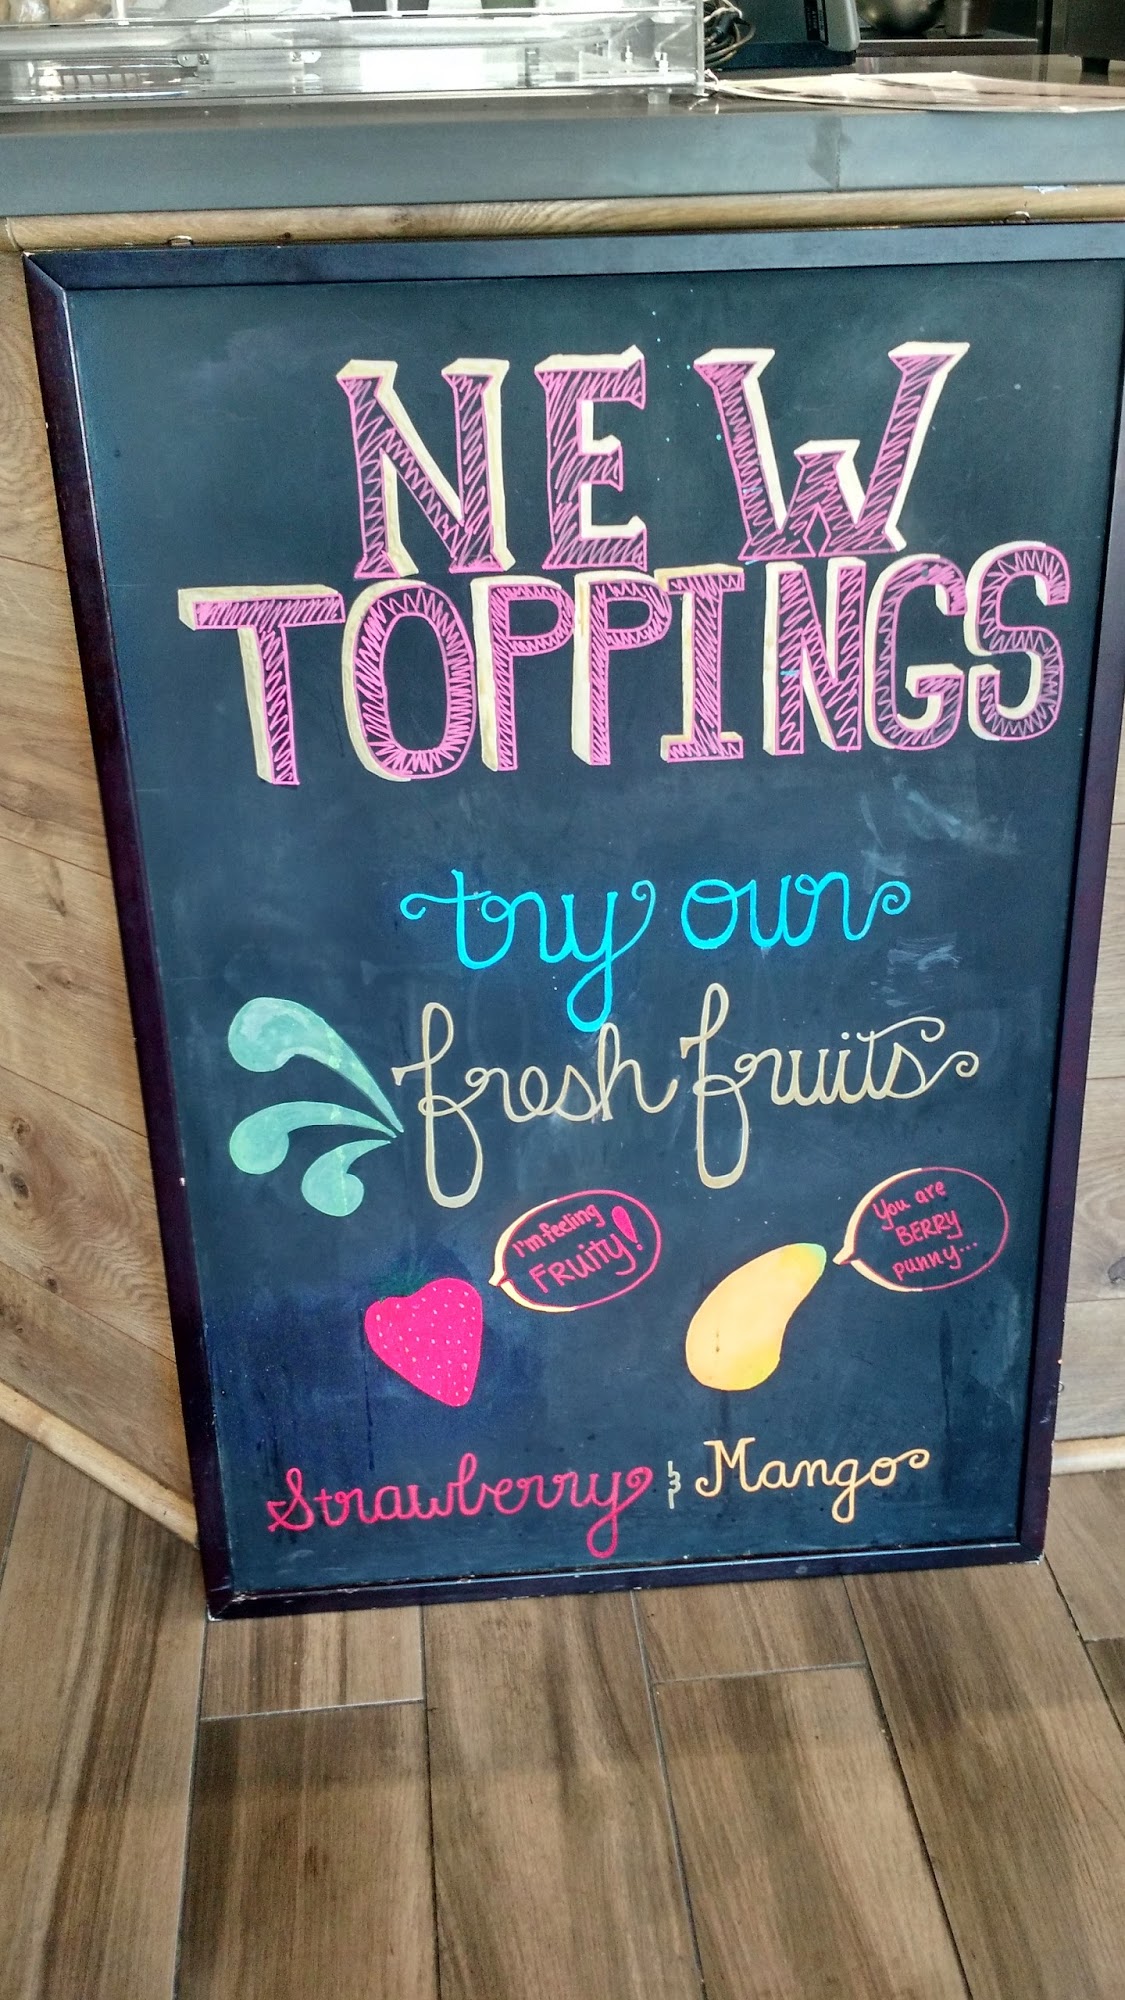 NEW
TOPPINGS
try our
fresh fruits
I'm feeling
FRUITY!
You are
BERRY
punny...
Strawberry & Mango